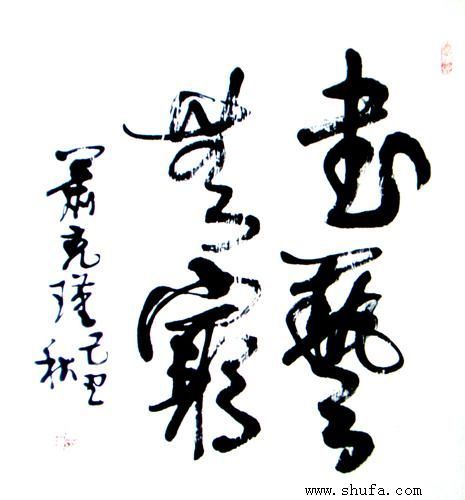 書藝
無窮
蕭克瑾
己丑
秋
www.shufa.com